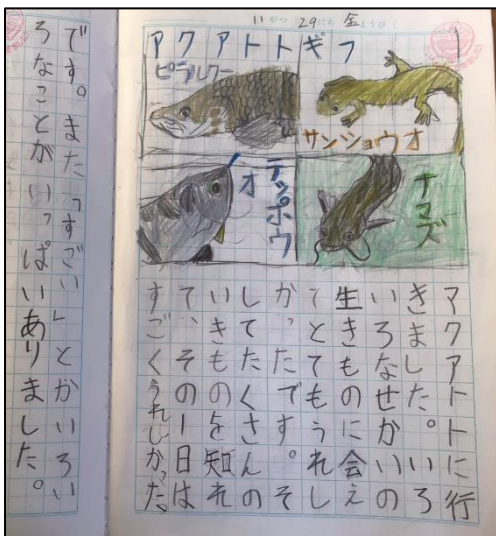 11がつ 29にち 金ようび
アクアトトギフ
サンショウオ
ピラルクー
ナマズ
テッポウ
オ
アクアトトに行
きました。いろ
いろなせかいの
生きものに会え
てとてもうれし
かったです。そ
してたくさんの
いきものを知れ
て、その一日は
すごくうれしかった。
です。また「すごい」とかいろい
ろなことがいっぱいありました。